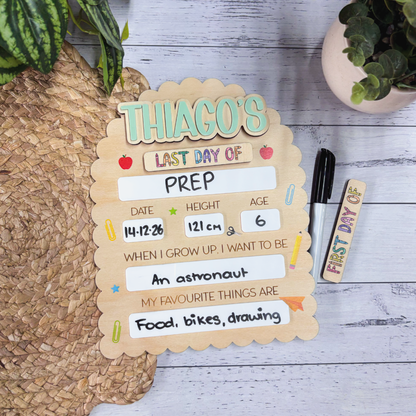 THIAGO'S
LAST DAY OF
PREP
DATE HEIGHT AGE
14·12·26 121cm 6
WHEN I GROW UP, I WANT TO BE
An astronaut
MY FAVOURITE THINGS ARE
Food, bikes, drawing
FIRST DAY OF